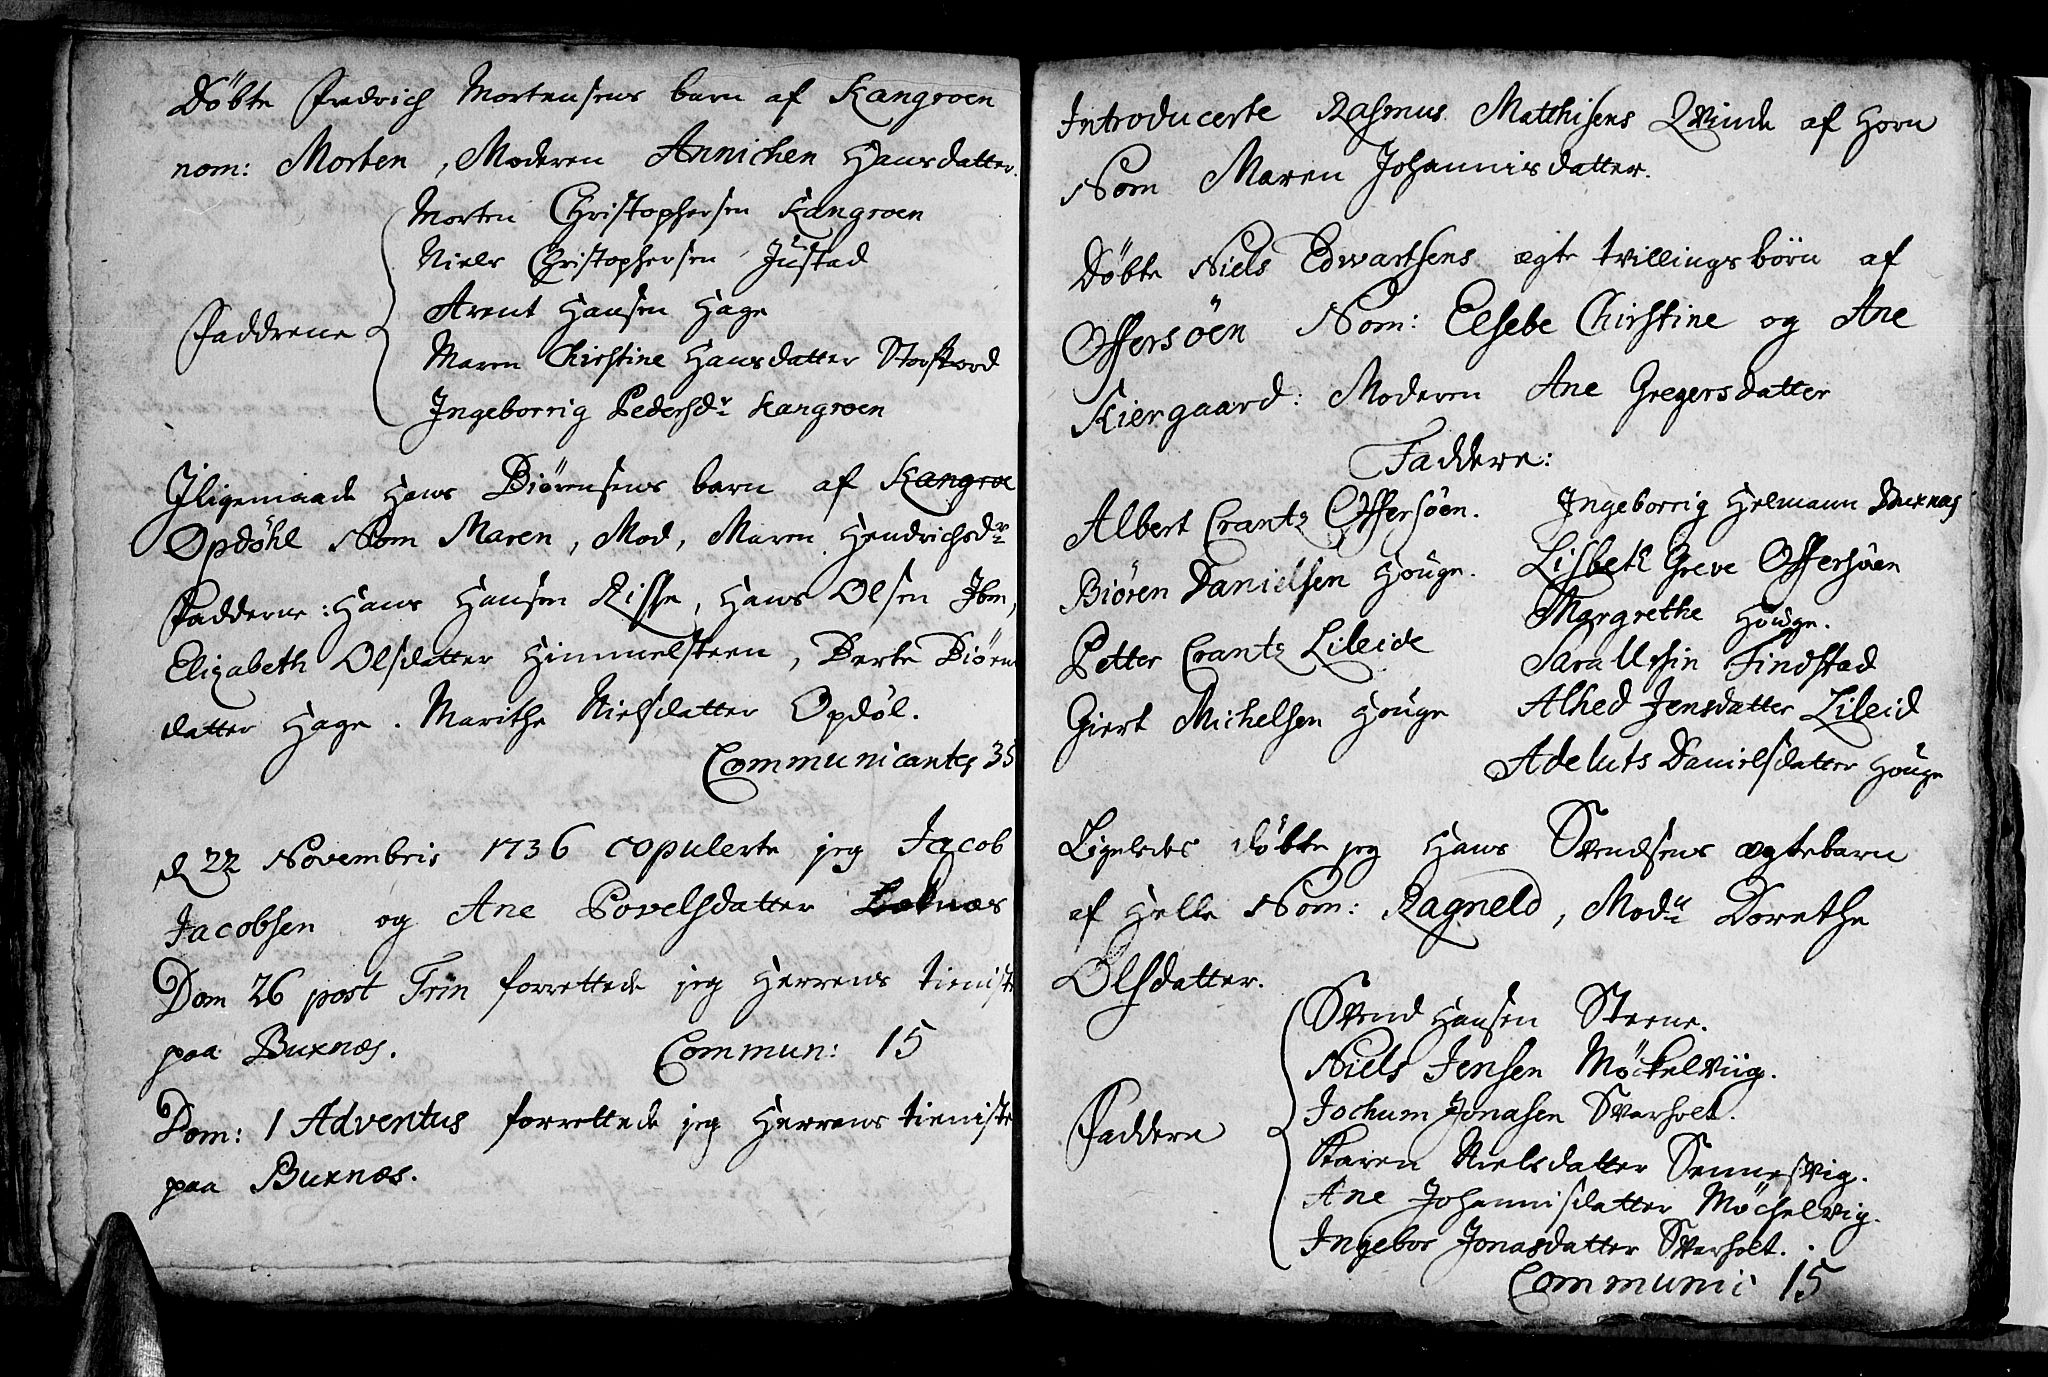 Döbte Fredrich Mortensens barn af Kangroen
nom: Morten, Moderen Annichen Hansdatter.
Morten Christophersen Kangroen
Niels Christophersen Justad
Arent Hansen Hage
Faddrene
Maren Chirstine Hansdatter Storfiord
Ingeborrig Pedersdr Kangroen
Iligemaade Hans Biörensens barn af Kangroe
Opdöhl Nom Maren, Mod, Maren Hendrichsdr
Fadderne: Hans Hansen Risse, Hans Olsen Ibm,
Elizabeth Olsdatter Himmelsteen, Berte Biörns
datter Hage. Marithe Nielsdatter Opdöl.
Communicantes 35
d 22 Novembris 1736 copulerte jeg Jacob
Jacobsen og Ane Povelsdatter
Dom 26 post Trin forrettede jeg Herrens tieniste
paa Buxnæs. Commun: 15
Dom: 1 Adventus forrettede jeg Herrens tieniste
paa Buxnæs.
Introducerte Rasmus Matthisens Qvinde af Horn
Nom Maren Johannisdatter.
Döbte Niels Edwartsens ægte tvillings börn af
Offersöen Nom: Elsebe Chirstine og Ane
Kiergaard: Moderen Ane Gregersdatter
Faddere:
Albert Crantz Offersöen. Ingeborrig Helmann Buxnæs
Biören Danielsen Houge. Lisbeth Greve Offersöen
Margrethe Houge.
Petter Crantz Lileide Sara Ursin Findstad
Giert Michelsen Houge Alhed Jensdatter Lileid
Adeluts Danielsdatter Houge
Ligeledes döbte jeg Hans Svendsens ægtebarn
af Helle Nom: Ragneld, Modr Dorethe
Olsdatter.
Svend Hansen Steene.
Niels Jensen Möckelviig.
Jochum Jonasen Svarholt.
Faddere
Karen Nielsdatter Sennesvig.
Ane Johannisdatter Möchelvig.
Ingebor Jonasdatter Svarholt.
Communi: 15